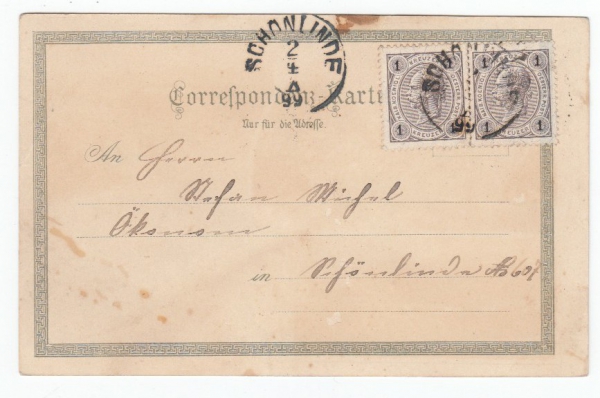 SCHÖNLINDE
2
4
99
1 KREUZER 1
1 KREUZER 1
SCHÖNLINDE
99
Correspondenz-Karte
Nur für die Adresse.
An Herrn
Stefan Michel
Ökonom
in Schönlinde No